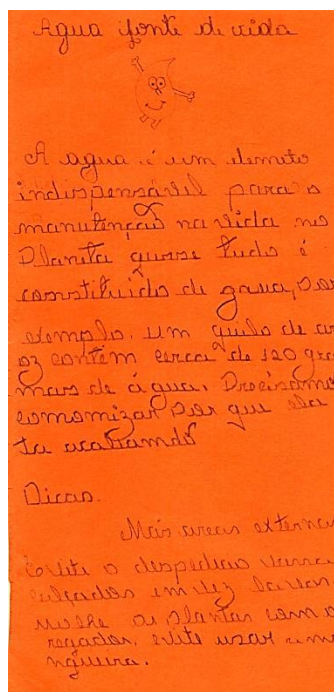 Agua fonte de vida
A agua é um elemeto
indispensável para o
manutenção na vida no
Planeta quase tudo é
constituido de grua, por
exemplo. um quilo de arr
oz contém cerca de 120 gra
mas de água. Precisamo
economizar por que ela
ta acabando
Dicas.
Mais areas externas
Evite o despedicio varra
calçadas em vez lavar
molhe as plantas com o
regador. evite usar a ma
ngueira.